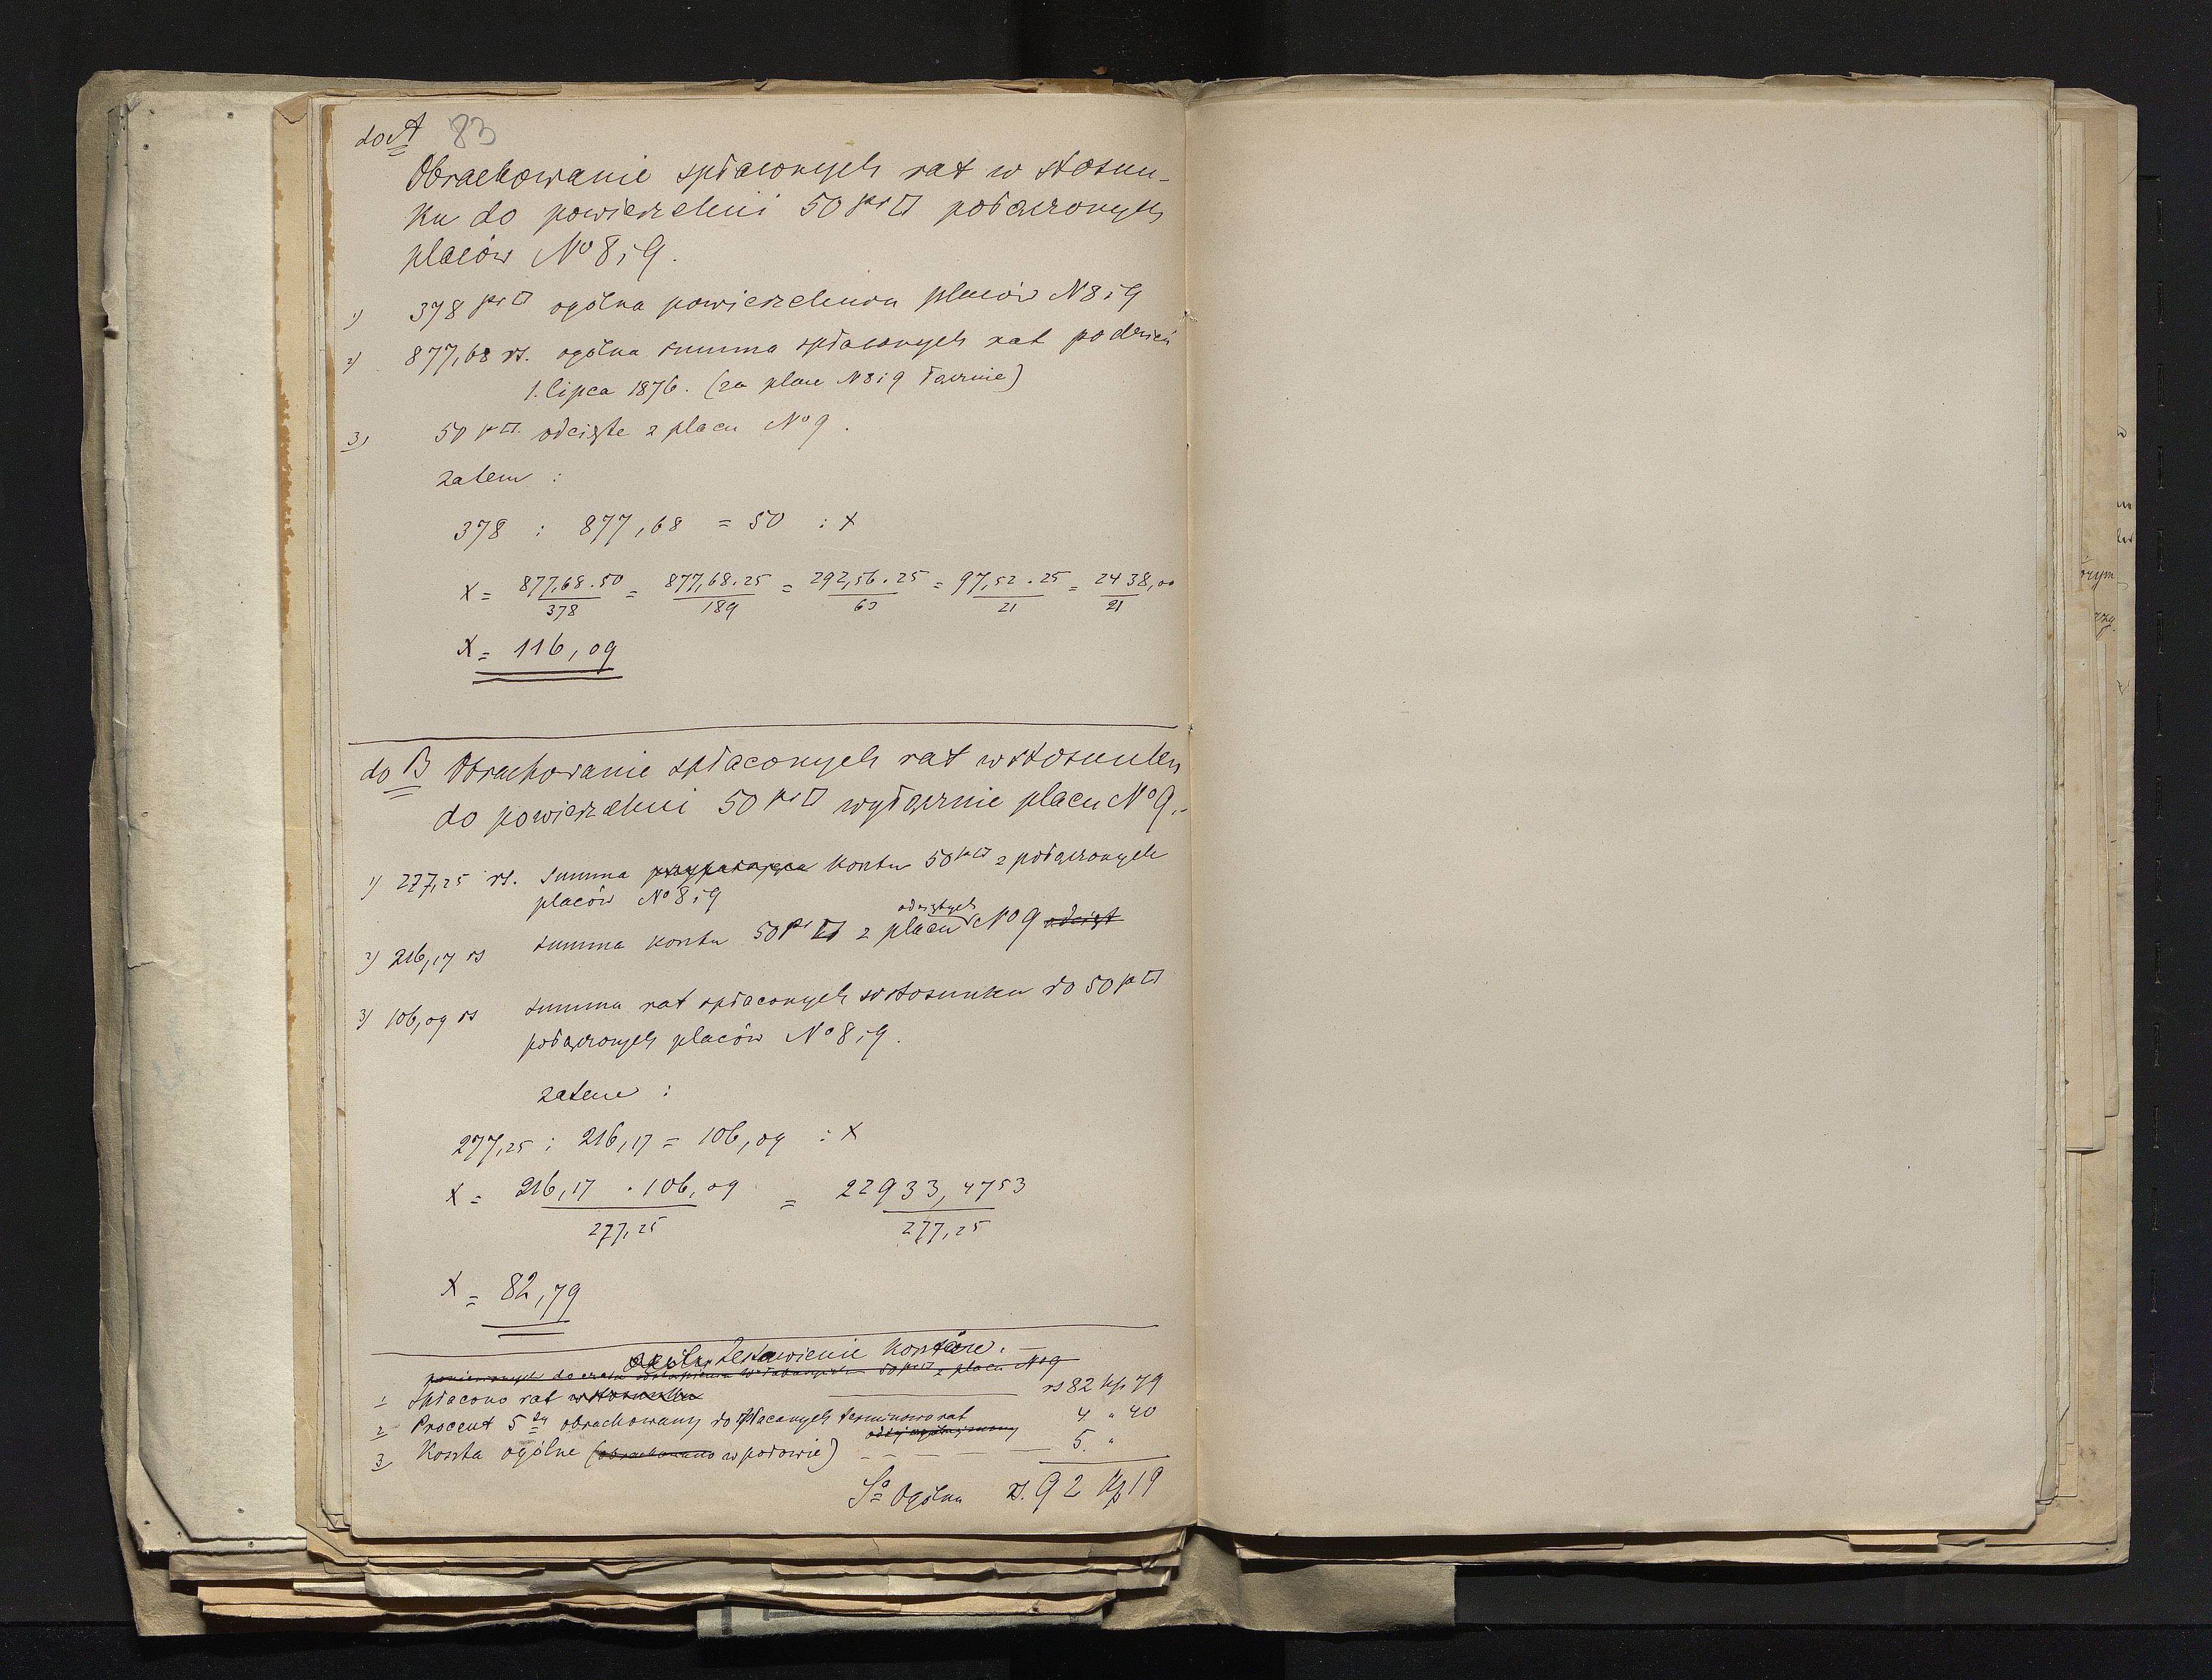 do A 83
Obrachowanie spłaconych rat w stosun-
ku do powierzchni 50 pr □ połączonych
placów No 8 i 9.
1) 378 pr □ ogólna powierzchnia placów N 8 i 9
2) 877,68 rs. ogólna summa spłaconych rat po dzień
1. lipca 1876. (za place N 8 i 9 łącznie)
3) 50 pr □. odcięte z placu No 9.
zatem :
378 : 877,68 = 50 : x
x = 877,68 . 50 / 378 = 877,68 . 25 / 189 = 292,56 . 25 / 63 = 97,52 . 25 / 21 = 2438,00 / 21
x = 116,09
do B Obrachowanie spłaconych rat w stosunku
do powierzchni 50 pr □ wyłącznie placu No 9.-
1) 277,25 rs. summa przypadająca kosztu 50 pr □ z połączonych
placów No 8 i 9
odciętych
2) 216,17 rs summa kosztu 50 pr □ z placu No 9 odcięt
3) 106,09 rs summa rat spłaconych w stosunku do 50 pr □
połączonych placów No 8 i 9.
zatem :
277,25 : 216,17 = 106,09 : x
x = 216,17 . 106,09 / 277,25 = 22933,4753 / 277,25
x = 82,79
Zestawienie kosztów. —
50 pr □ z placu No 9
1 Spłacono rat w stosunku — rs 82 kp 79
2 Procent 5 obrachowany do spłaconych terminowo rat 4 " 40
3 Koszta ogólne (obrachowano w połowie) — — — 5. "
Sa Ogólna rs. 92 kp 19